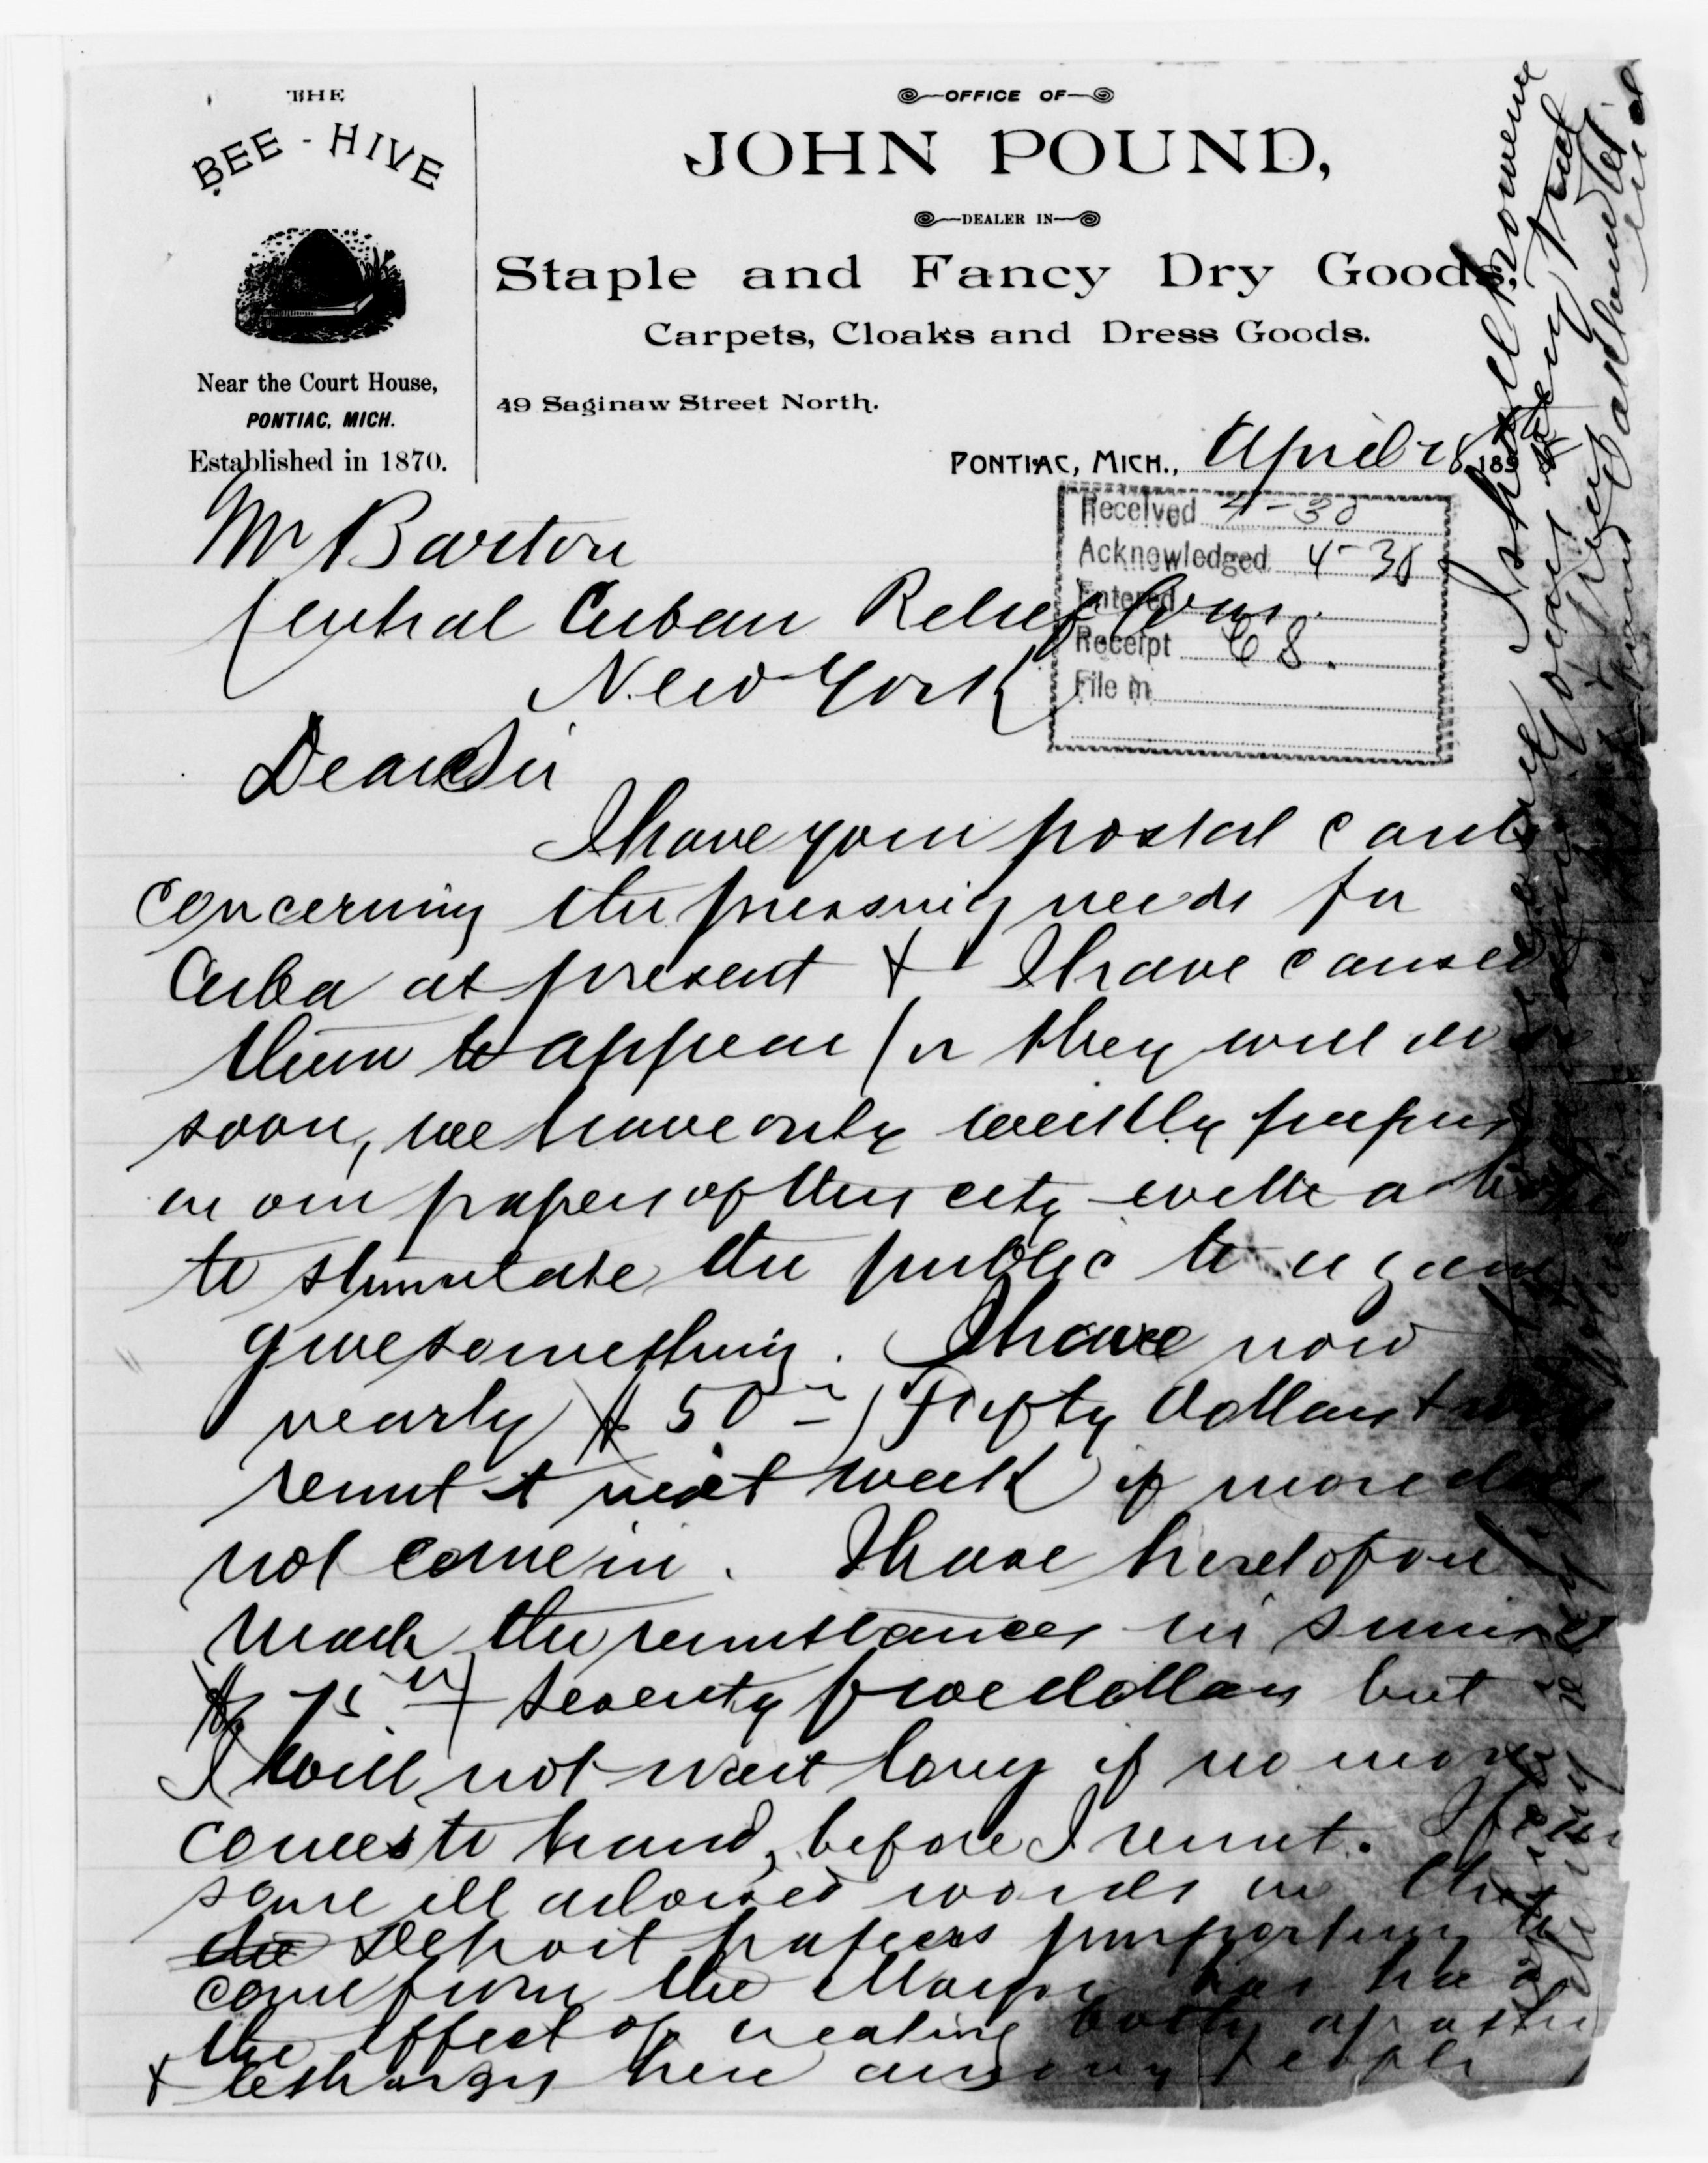 THE
BEE-HIVE
Near the Court House,
PONTIAC, MICH.
Established in 1870.
OFFICE OF
JOHN POUND,
DEALER IN
Staple and Fancy Dry Goods,
Carpets, Cloaks and Dress Goods.
49 Saginaw Street North.
PONTIAC, MICH., April 28 189
Received 4-30
Acknowledged 4-30
Entered
Receipt 68.
File in
Mr Barton
Central Cuban Relief Com.
New York
Dear Sir
I have your postal cards
concerning the pressing needs for
Cuba at present & I have caused
them to appear (or they will do so
soon, we have only weekly papers
in our papers of this city with a
to stimulate the public to again
give something. I have now
nearly $50 Fifty Dollars &
remit it next week if more does
not come in. I have heretofore
made the remittances in sums
$75 seventy five dollars but
I will not wait long if no more
comes to hand, before I remit.
some ill advised words in the
the Detroit papers purporting to
come from the Mayor has had
the effect of creating both apathy
& lethargy here among people
I shall
very